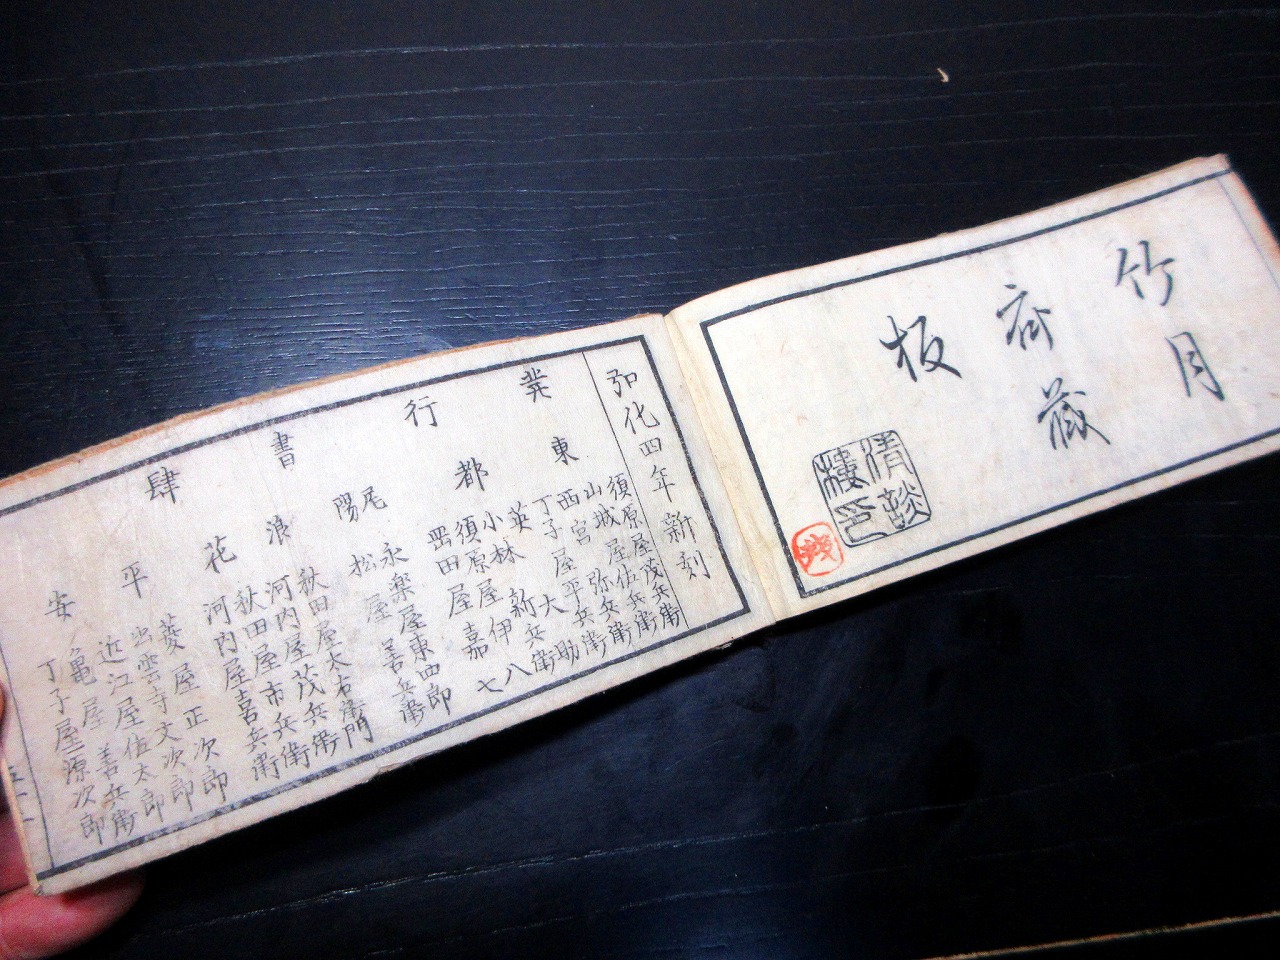 竹月
斎蔵
板
清談
樓印
弘化四年新刻
発行書肆
東都
須原屋茂兵衛
山城屋佐兵衛
西宮弥兵衛
丁子屋平兵衛
英大助
小林新兵衛
須原屋伊八
岡田屋嘉七
尾陽
永楽屋東四郎
松屋善兵衛
浪花
秋田屋太右衛門
河内屋茂兵衛
秋田屋市兵衛
河内屋喜兵衛
平安
菱屋正次郎
出雲寺文次郎
近江屋佐太郎
亀屋善兵衛
丁子屋源次郎